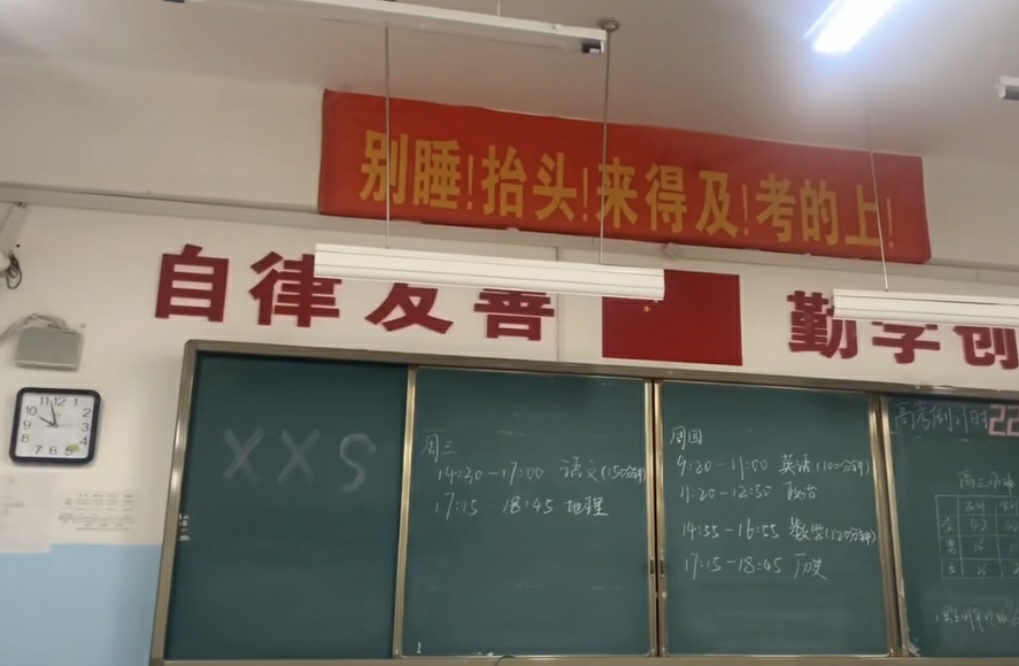 别睡!抬头!来得及!考的上!
自律友善
勤学创
12
11
1
10
2
9
3
8
4
7
6
5
XXS
周三
14:30-17:00 语文(150分钟)
17:15-18:45 地理
周四
9:20-11:00 英语(100分钟)
11:20-12:50 政治
14:55-16:55 数学(120分钟)
17:15-18:45 历史
高考倒计时 22